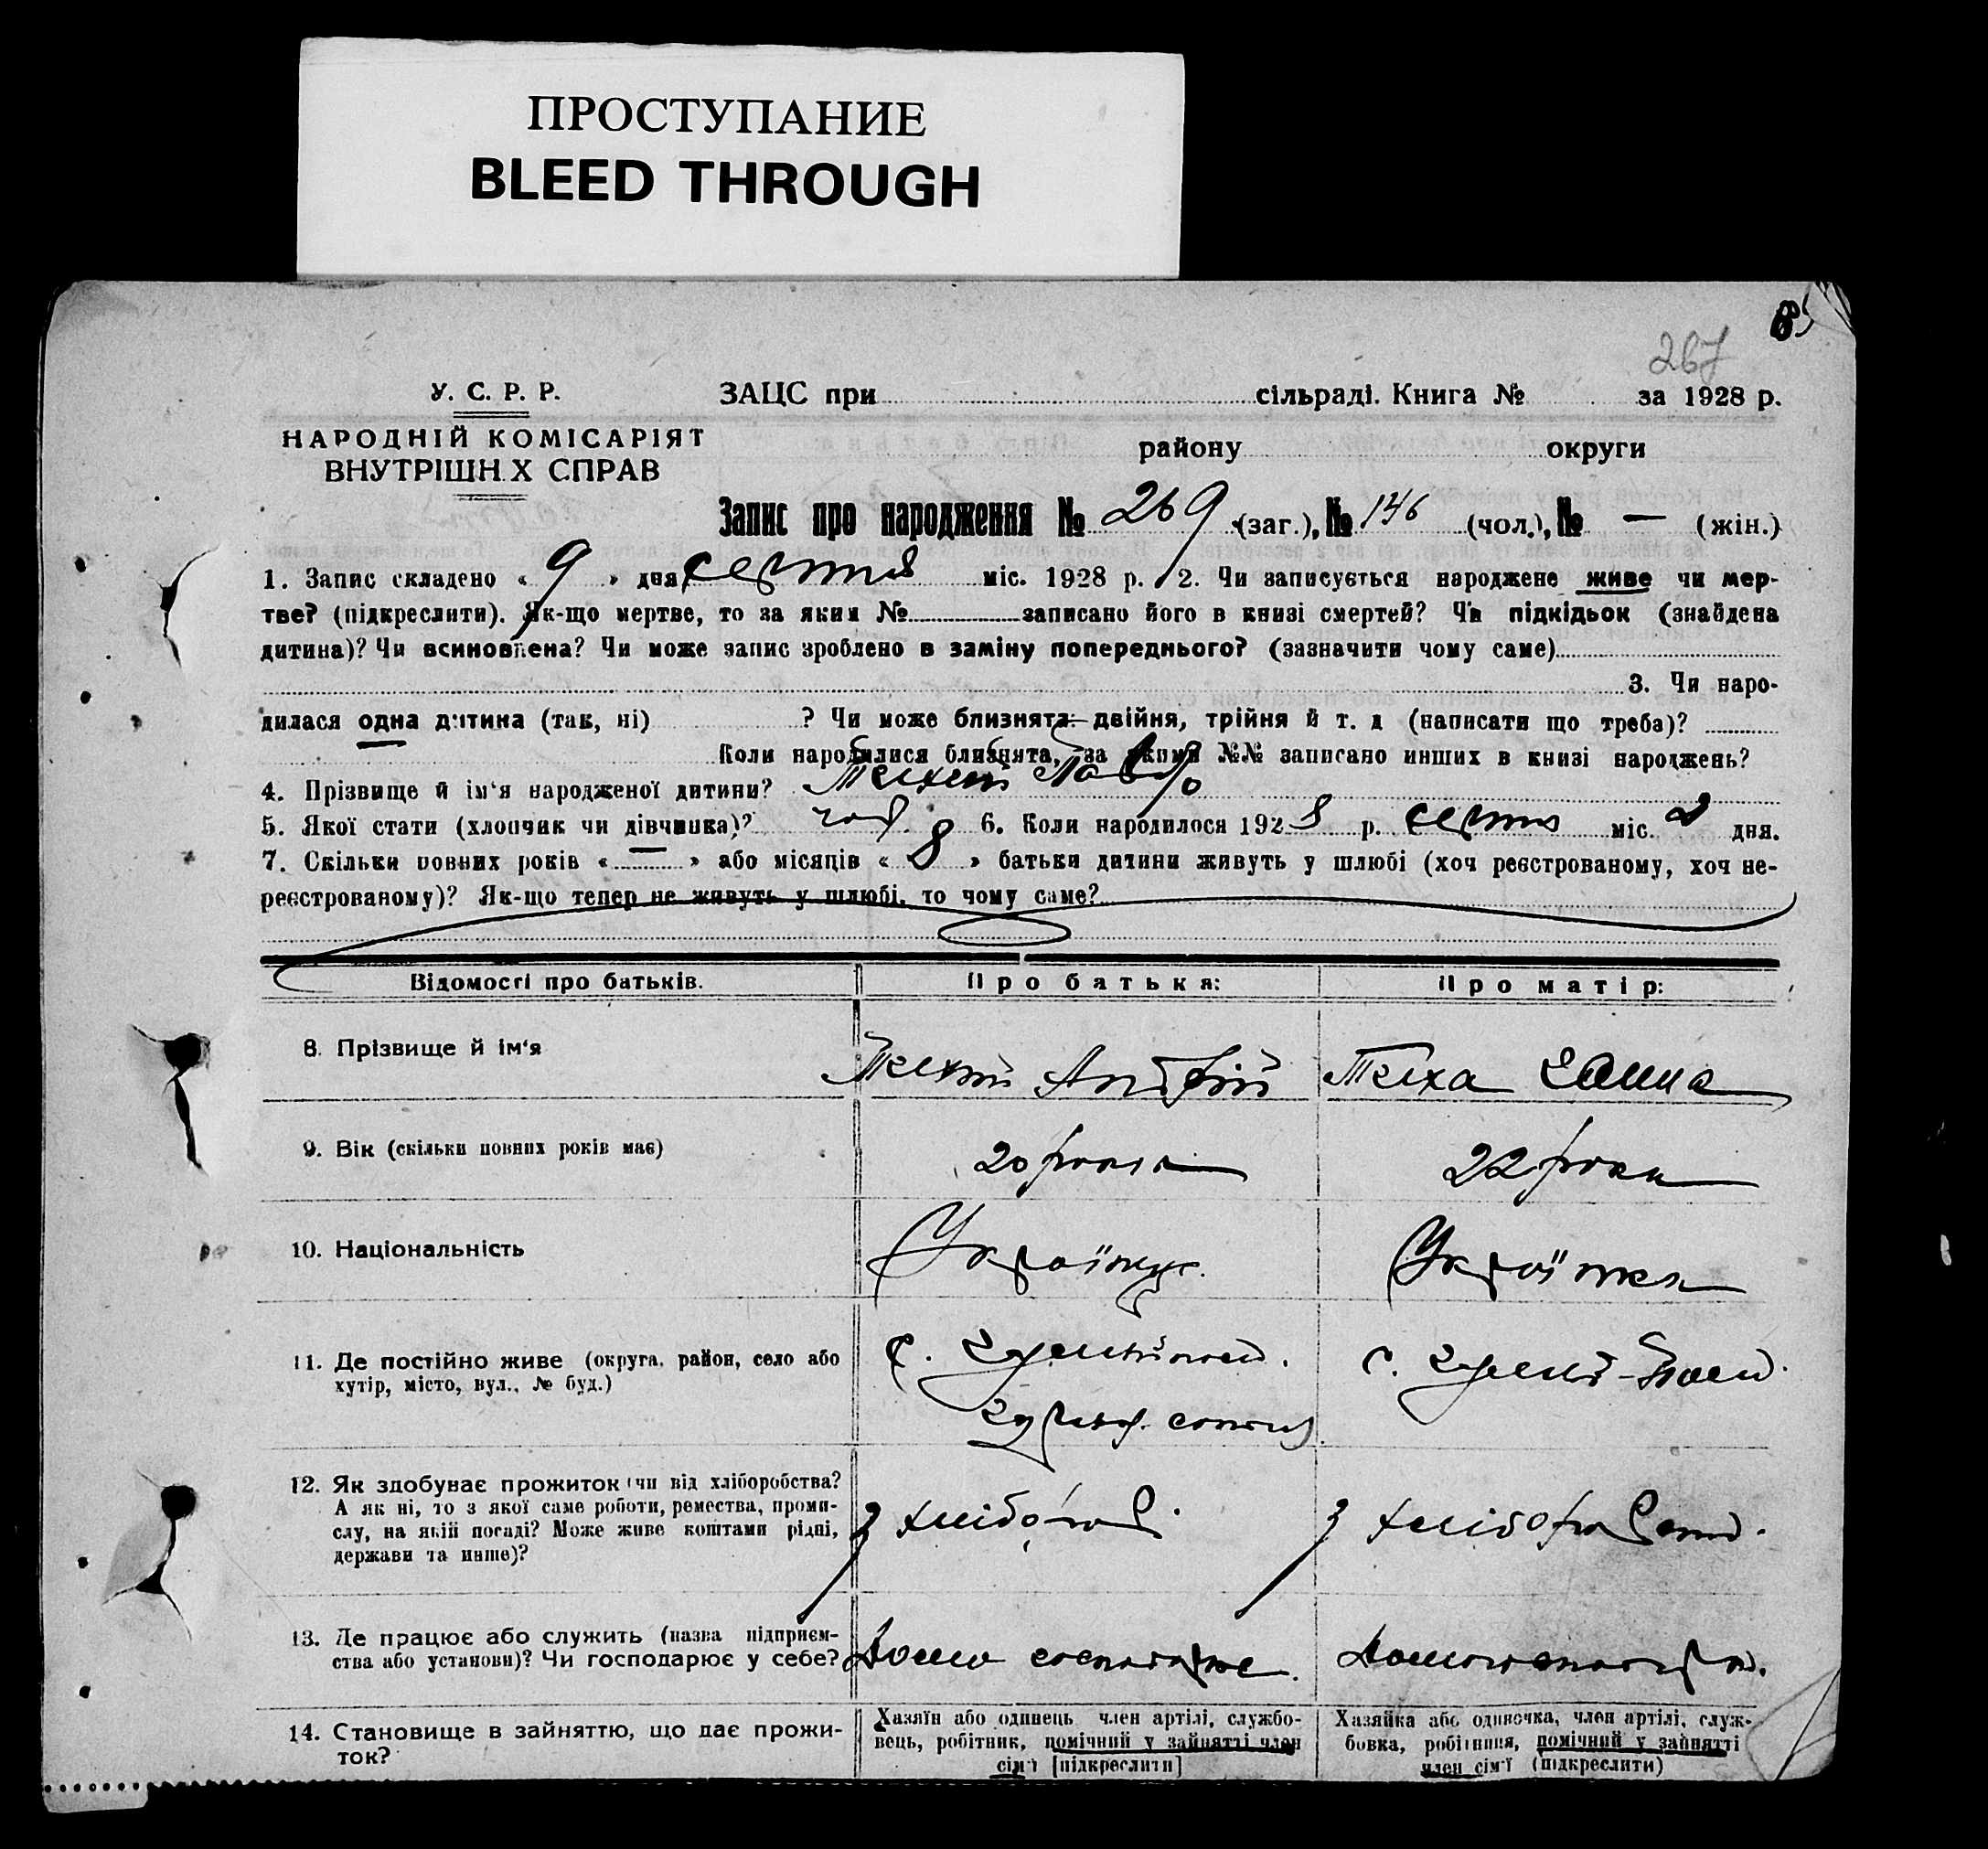 ПРОСТУПАНИЕ
BLEED THROUGH
267
У. С. Р. Р.
ЗАЦС при сільраді. Книга № за 1928 р.
НАРОДНІЙ КОМІСАРІЯТ
ВНУТРІШН.Х СПРАВ
району округи
Запис про народження № 269 (заг.), № 146 (чол.), № — (жін.)
1. Запис складено « 9 » дня серпня міс. 1928 р. 2. Чи записується народжене живе чи мер-
тве? (підкреслити). Як-що мертве, то за яким № записано його в книзі смертей? Чи підкідьок (знайдена
дитина)? Чи всиновлена? Чи може запис зроблено в заміну попереднього? (зазначити чому саме)
3. Чи наро-
дилася одна дитина (так, ні) ? Чи може близнята: двійня, трійня й т. д (написати що треба)?
Коли народилися близнята, за якими №№ записано инших в книзі народжень?
4. Прізвище й ім'я народженої дитини? Павло
5. Якої стати (хлопчик чи дівчинка)? чол. 6. Коли народилося 1928 р. серпня міс. 2 дня.
7. Скільки повних років « — » або місяців « 8 » батьки дитини живуть у шлюбі (хоч реєстрованому, хоч не-
реєстрованому)? Як-що тепер не живуть у шлюбі, то чому саме?
Відомості про батьків. Про батька: Про матір:
8. Прізвище й ім'я
Андрій Ганна
9. Вік (скільки повних років має)
20 років 22 роки
10. Національність
Українець. Українка
11. Де постійно живе (округа, район, село або
хутір, місто, вул., № буд.)
с. с.
12. Як здобуває прожиток (чи від хліборобства?
А як ні, то з якої саме роботи, ремества, проми-
слу, на якій посаді? Може живе коштами рідні,
держави та инше)?
з хлібороб. з хлібороб
13. Де працює або служить (назва підприєм-
ства або установи)? Чи господарює у себе?
Дома господарює. Домогосподар.
14. Становище в зайняттю, що дає прожи-
ток?
Хазяїн або одинець член артілі, службо-
вець, робітник, помічний у зайнятті член
сім'ї [підкреслити]
Хазяйка або одиночка, член артілі, служ-
бовка, робітниця, помічний у зайнятті
член сім'ї (підкреслити)